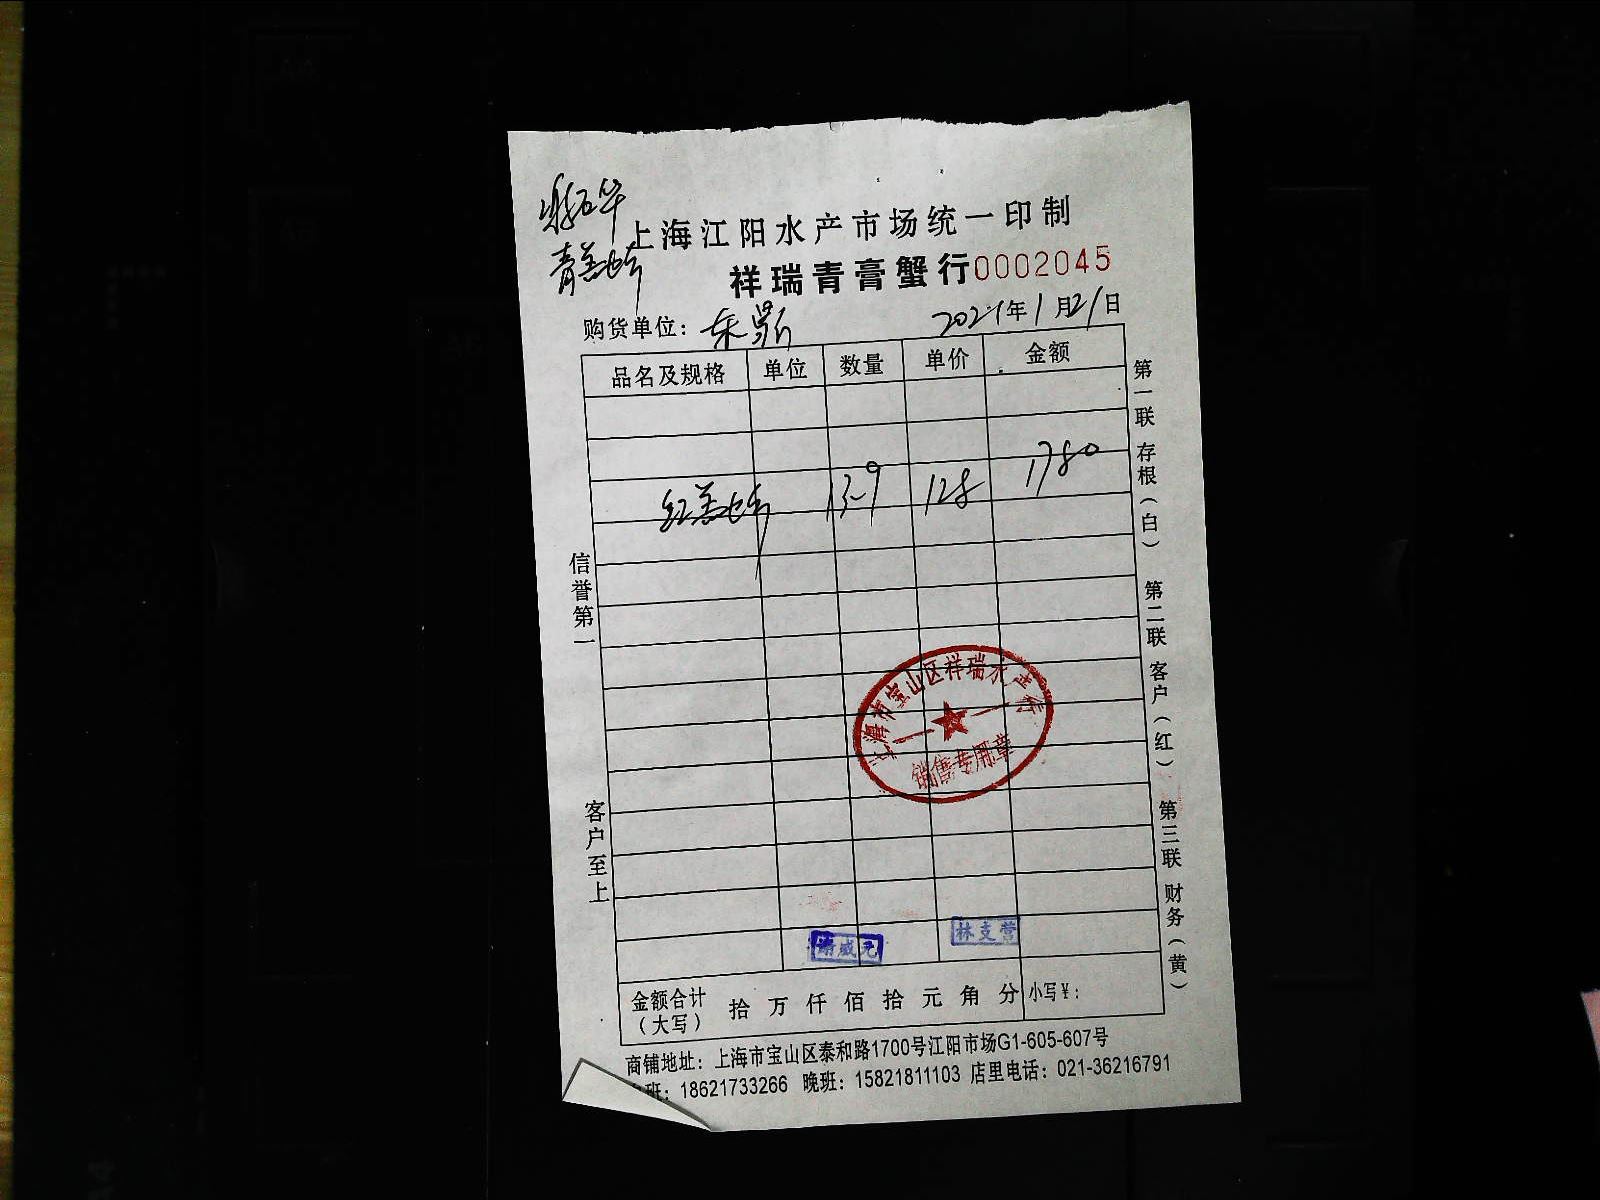 上海江阳水产市场统一印制
祥瑞青膏蟹行0002045
购货单位：
2021年1月21日
品名及规格 单位 数量 单价 金额
13-9 128 1780
信誉第一
客户至上
第一联 存根（白） 第二联 客户（红） 第三联 财务（黄）
上海市宝山区祥瑞水产行
销售专用章
林支营
金额合计（大写） 拾 万 仟 佰 拾 元 角 分 小写￥：
商铺地址：上海市宝山区泰和路1700号江阳市场G1-605-607号
班：18621733266 晚班：15821811103 店里电话：021-36216791